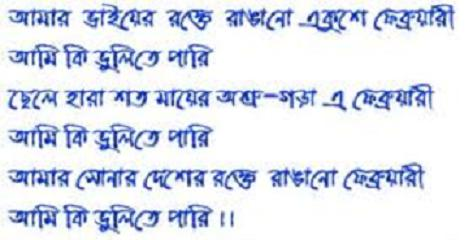 আমার ভাইয়ের রক্তে রাঙানো একুশে ফেব্রুয়ারী
আমি কি ভুলিতে পারি
ছেলে হারা শত মায়ের অশ্রু-গড়া এ ফেব্রুয়ারী
আমি কি ভুলিতে পারি
আমার সোনার দেশের রক্তে রাঙানো ফেব্রুয়ারী
আমি কি ভুলিতে পারি ।।